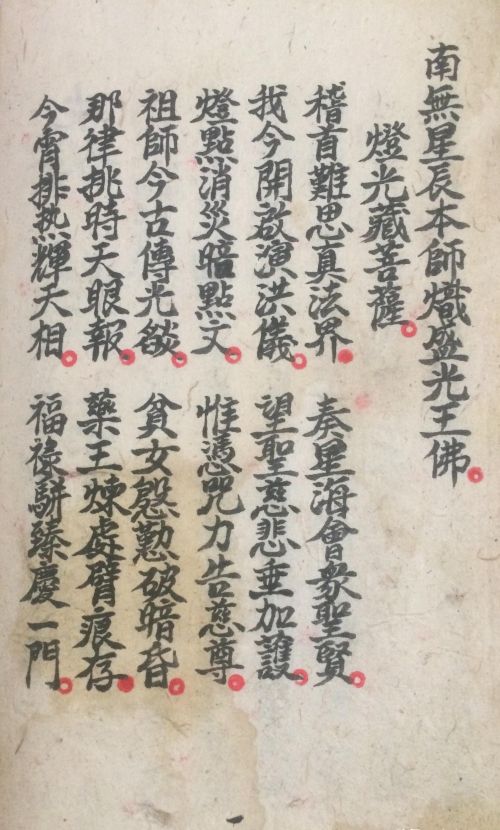 南無星辰本師熾盛光王佛
燈光藏菩薩
稽首難思真法界 奏星海會衆聖賢
我今開啟演洪儀 望聖慈悲垂加護
燈點消災暗點文 惟憑咒力告慈尊
祖師今古傳光燄 貧女慇懃破暗昏
那律挑時天眼報 藥王煉處臂痕存
今宵排熱輝天相 福祿駢臻慶一門